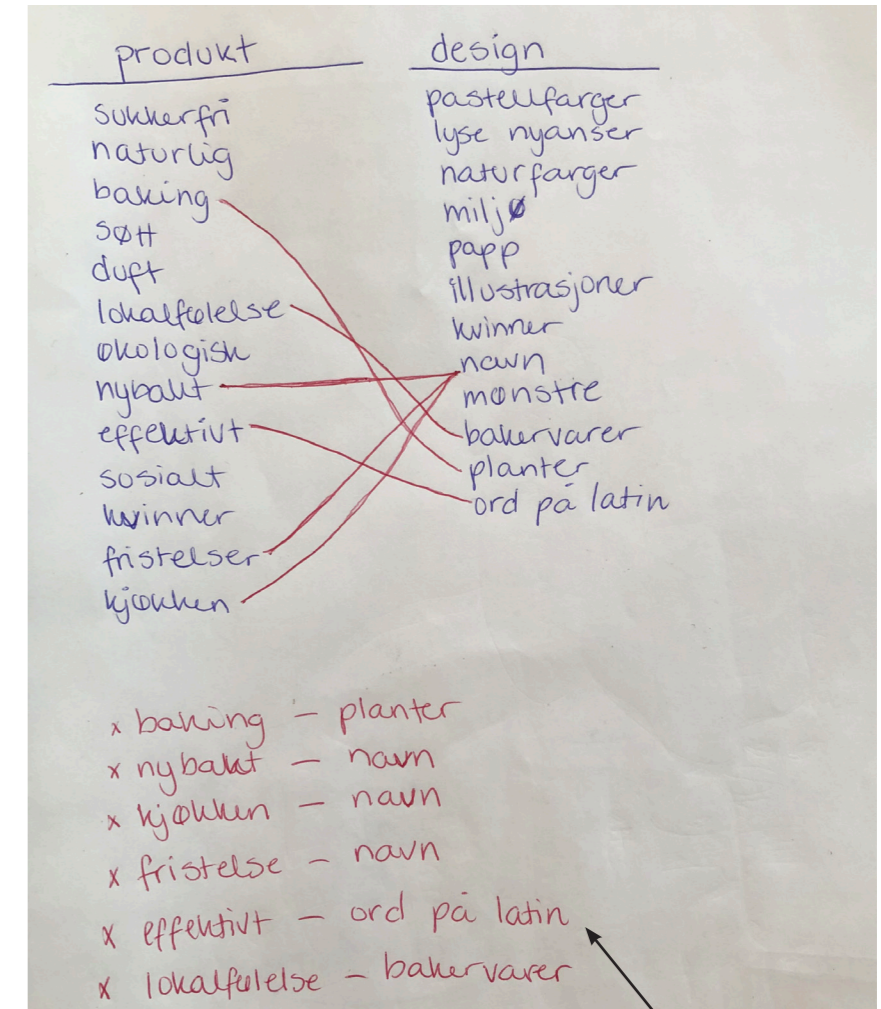 produkt
sukkerfri
naturlig
baking
søtt
duft
lokalfølelse
økologisk
nybakt
effektivt
sosialt
kvinner
fristelser
kjøkken
design
pastellfarger
lyse nyanser
naturfarger
miljø
papp
illustrasjoner
kvinner
navn
mønstre
bakervarer
planter
ord på latin
x baking – planter
x nybakt – navn
x kjøkken – navn
x fristelse – navn
x effektivt – ord på latin
x lokalfølelse – bakervarer